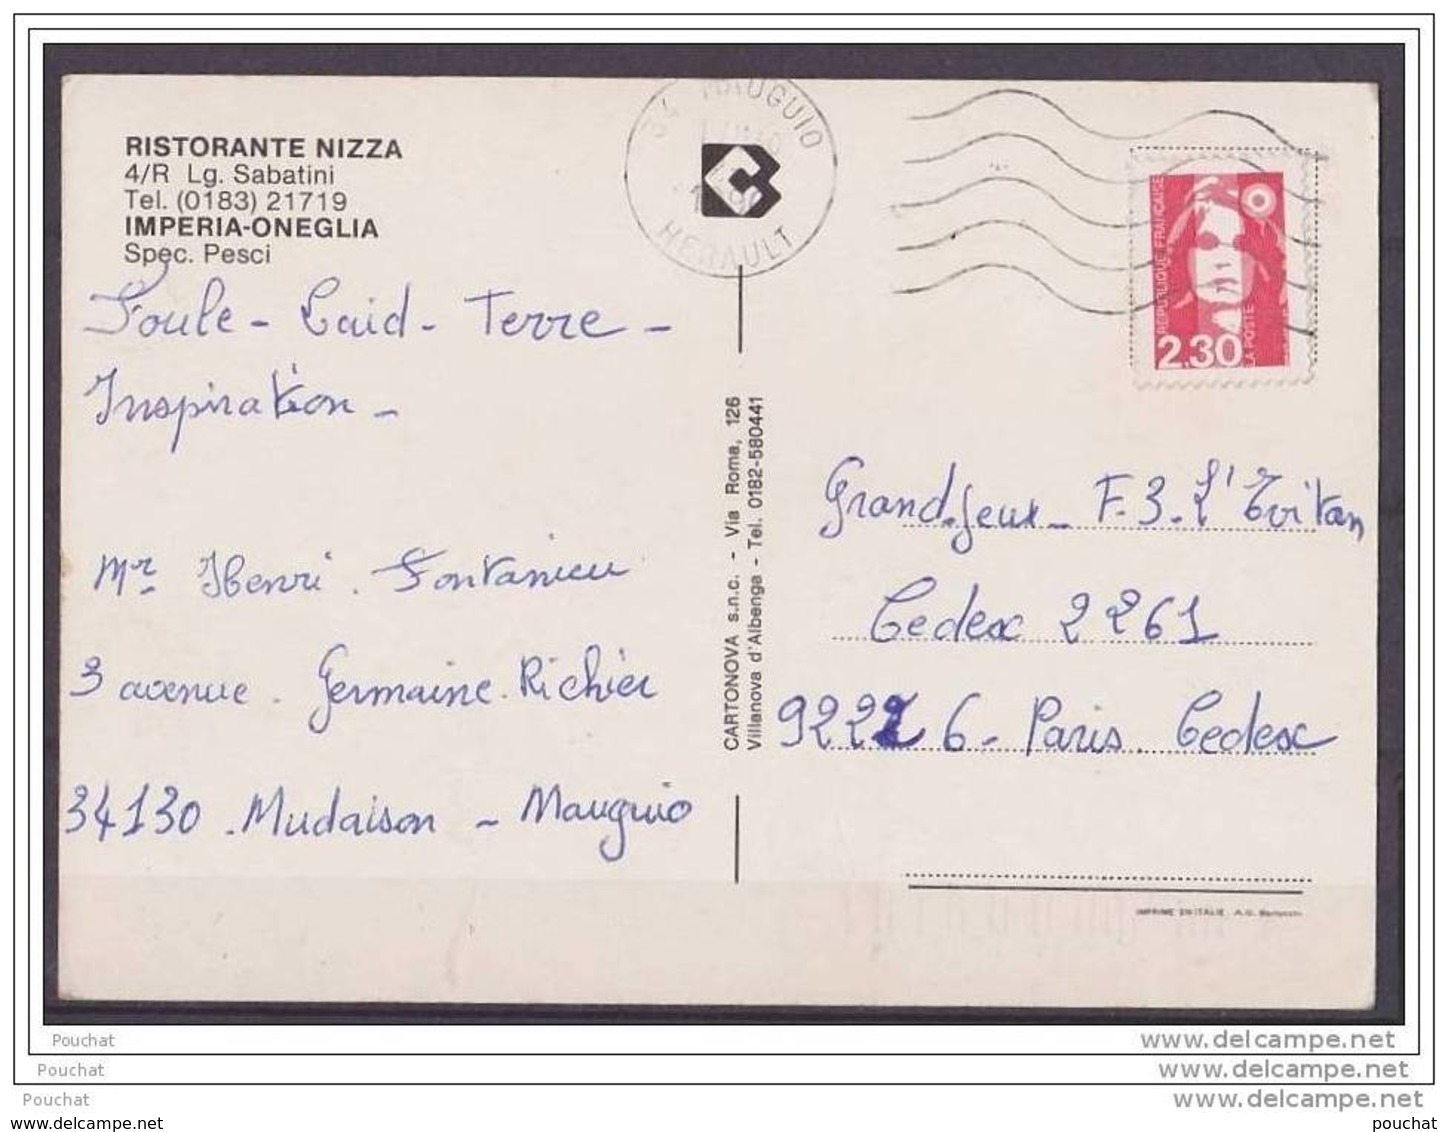 RISTORANTE NIZZA
4/R Lg. Sabatini
Tel. (0183) 21719
IMPERIA-ONEGLIA
Spec. Pesci
Foule - Caid - Terre -
Inspiration -
Mr Henri . Fontanieu
3 avenue . Germaine . Richier
34130 . Mudaison - Mauguio
34 MAUGUIO
HERAULT
REPUBLIQUE FRANÇAISE
LA POSTE
2,30
CARTONOVA s.n.c. - Via Roma, 126
Villanova d'Albenga - Tel. 0182-580441
Grand-Jeux - F.3. L'
Cedex 2261
92226 - Paris . Cedex
IMPRIME EN ITALIE A.G.
Pouchat www.delcampe.net
Pouchat www.delcampe.net
Pouchat www.delcampe.net
pouchat pouchat